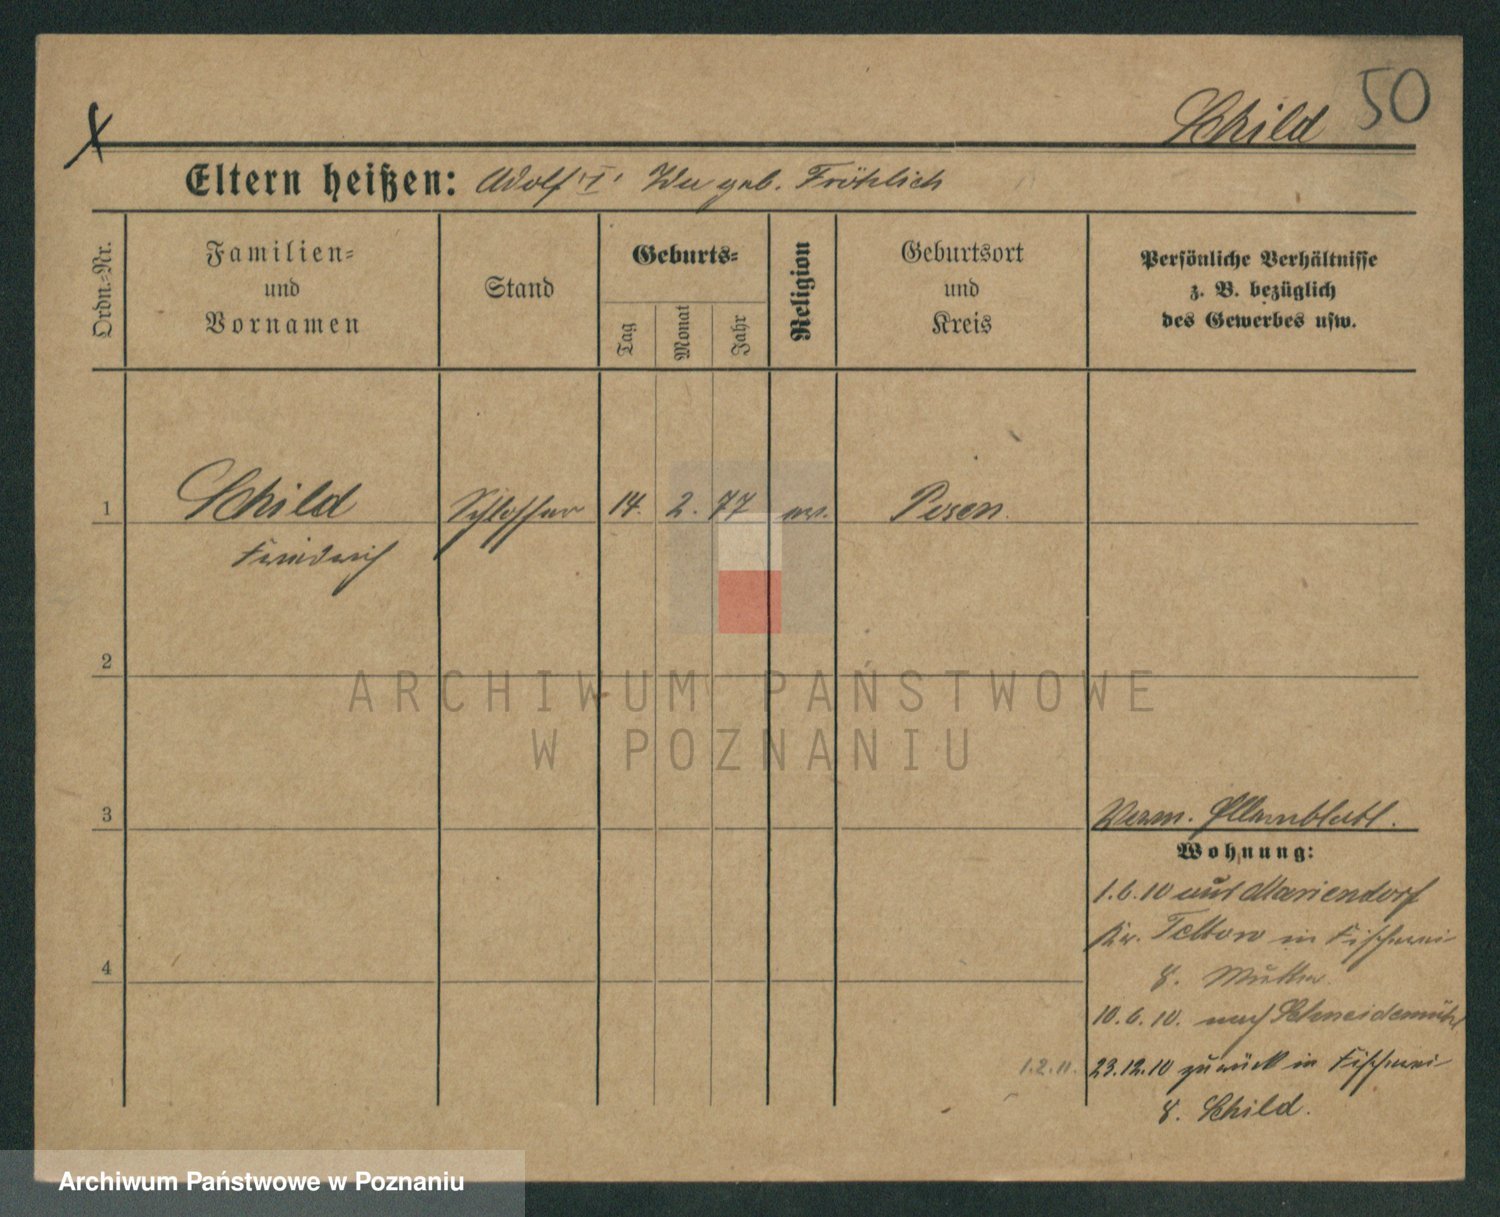 50
Schild
Eltern heißen: Adolf "I" geb. Fröhlich
Ordn.-Nr.
Familien-
und
Vornamen
Stand
Geburts-
Tag
Monat
Jahr
Religion
Geburtsort
und
Kreis
Persönliche Verhältnisse
z. B. bezüglich
des Gewerbes usw.
1
Schild
Friedrich
Schlosser
14.
2.
77
ev.
Posen.
2
ARCHIWUM PAŃSTWOWE
W POZNANIU
3
4
Verm.
Wohnung:
1.6.10 aus Mariendorf
Kr. Teltow in Fischerei
8. Mutter
10.6.10. nach Schneidemühl
1.2.11.
23.12.10 zurück in Fischerei
8. Schild.
Archiwum Państwowe w Poznaniu